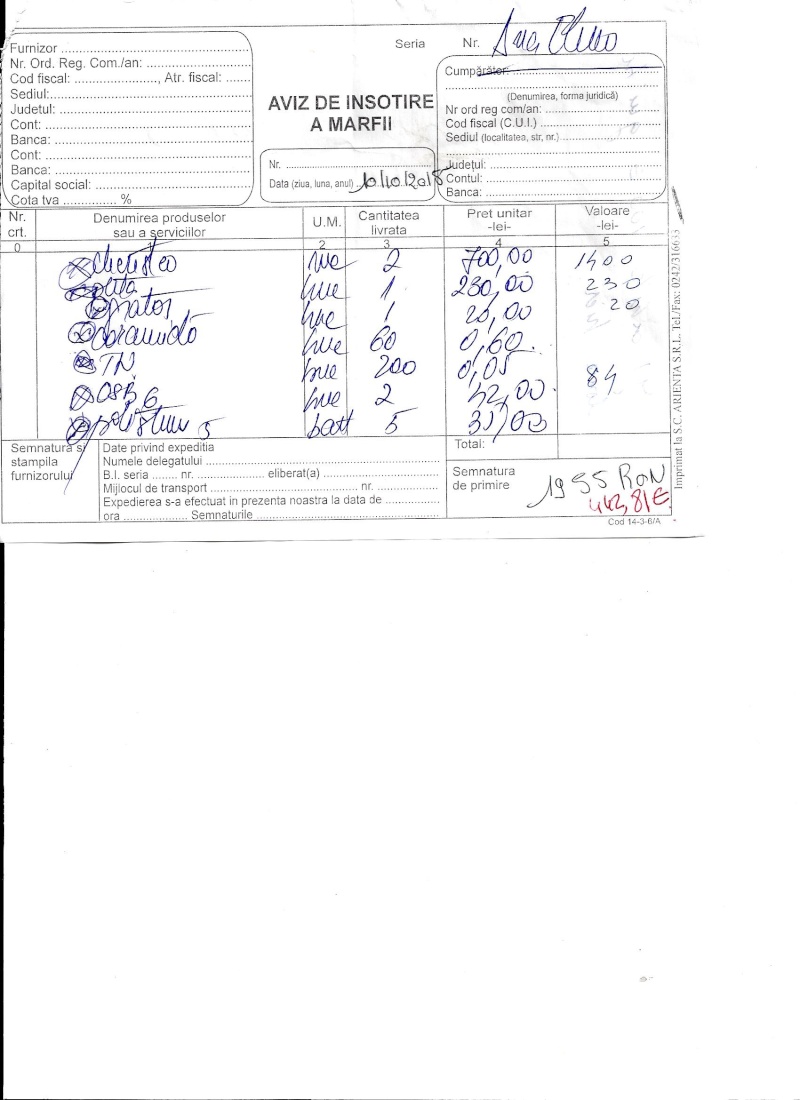 Furnizor
Nr. Ord. Reg. Com./an:
Cod fiscal: , Atr. fiscal:
Sediul:
Judetul:
Cont:
Banca:
Cont:
Banca:
Capital social:
Cota tva %
Seria Nr. Ana
AVIZ DE INSOTIRE
A MARFII
Nr.
Data (ziua, luna, anul) 10/10/2018
Cumpărător:
(Denumirea, forma juridică)
Nr ord reg com/an:
Cod fiscal (C.U.I.)
Sediul (localitatea, str, nr.)
Județul:
Contul:
Banca:
Nr. crt. Denumirea produselor sau a serviciilor U.M. Cantitatea livrata Pret unitar -lei- Valoare -lei-
0 1 2 3 4 5
2 700,00 1400
1 230,00 230
1 20,00 20
60 0,60
TN 200 0,05
OSB 6 2 42,00 84
5 5
Semnatura si stampila furnizorului
Date privind expeditia
Numele delegatului
B.I. seria nr. eliberat(a)
Mijlocul de transport nr.
Expedierea s-a efectuat in prezenta noastra la data de
ora Semnaturile
Total:
Semnatura de primire
1955 RON
443,81E
Cod 14-3-6/A
Imprimat la S.C. ARIENTA S.R.L. Tel./Fax: 0242/316633